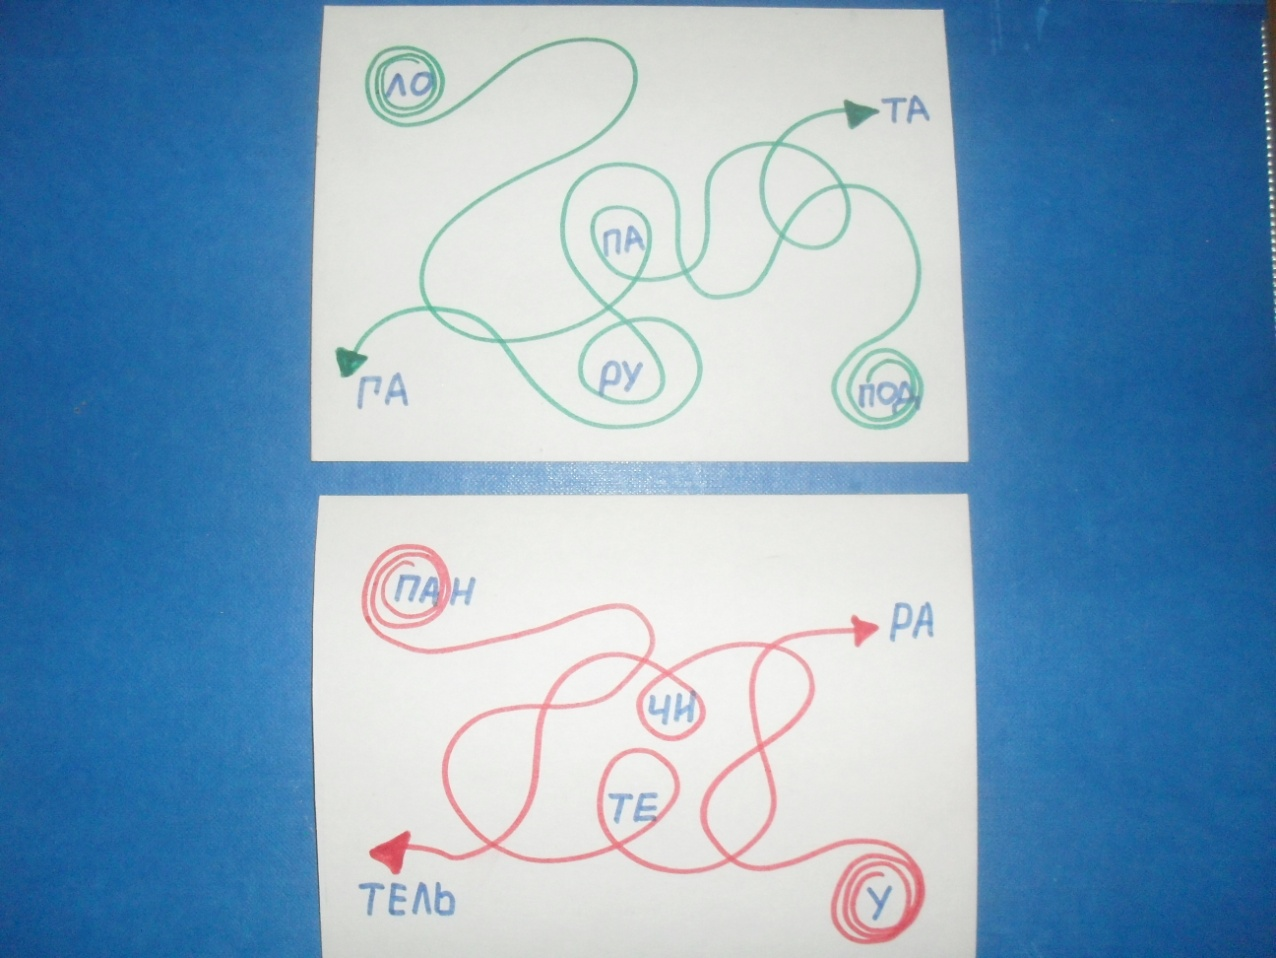 ЛО
ТА
ПА
РУ
ГА
ПОД
ПАН
РА
ЧИ
ТЕ
ТЕЛЬ
У